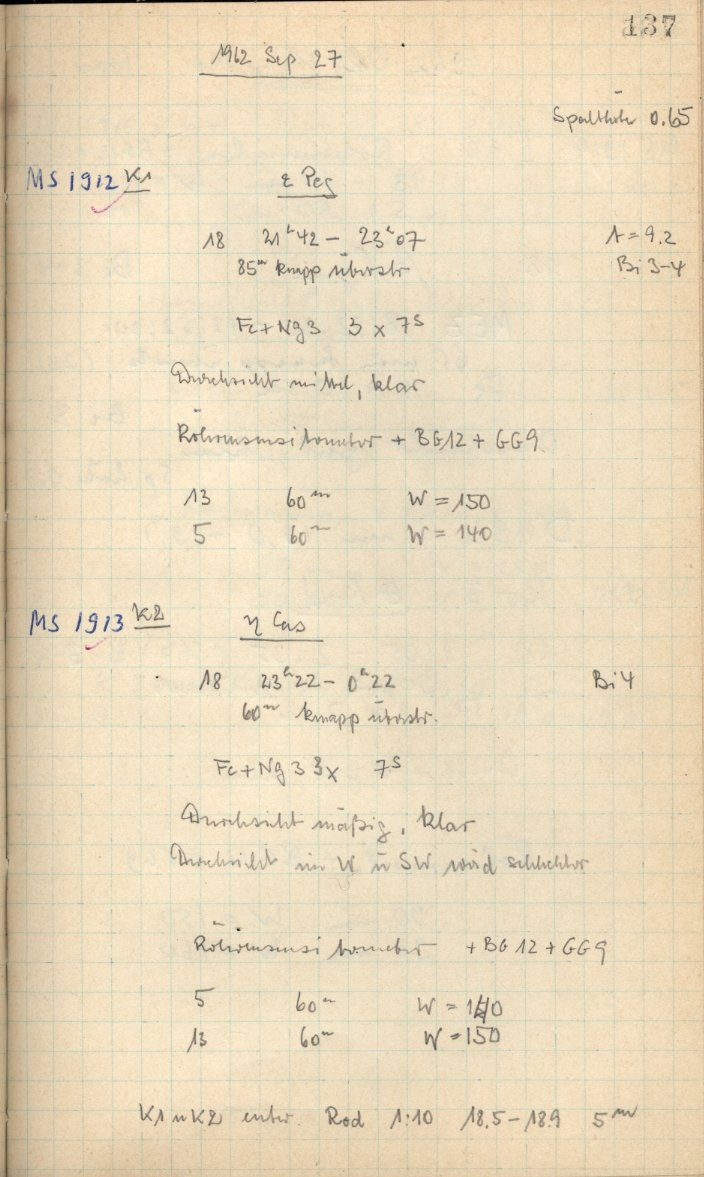 137
1962 Sep 27
Spalthöhe 0.65
MS 1912 K1 ε Peg
18 21ʰ42 – 23ʰ07 t = 9.2
85ᵐ knapp überstr Bi 3-4
Fe+Ng3 3 x 7ˢ
Durchsicht mittel, klar
Röhrensensitometer + BG12 + GG9
13 60ᵐ W = 150
5 60ᵐ W = 140
MS 1913 K2 η Cas
18 23ʰ22 – 0ʰ22 Bi 4
60ᵐ knapp überstr.
Fe+Ng3 3x 7ˢ
Durchsicht mäßig, klar
Durchsicht im W u SW wird schlechter
Röhrensensitometer + BG12 + GG9
5 60ᵐ W = 140
13 60ᵐ W = 150
K1 u K2 entw. Rod 1:10 18.5 – 18.9 5ᵐ